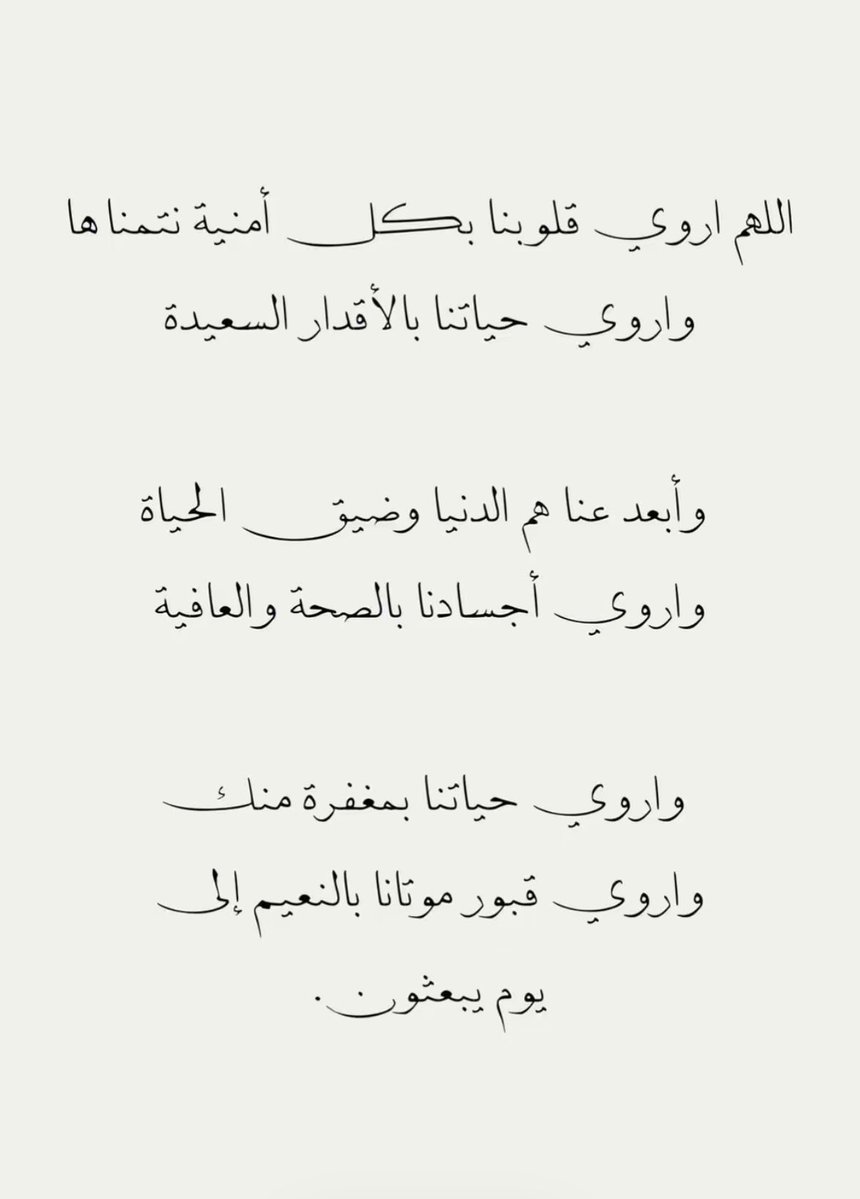 اللهم اروي قلوبنا بكل أمنية نتمناها
واروي حياتنا بالأقدار السعيدة
وأبعد عنا هم الدنيا وضيق الحياة
واروي أجسادنا بالصحة والعافية
واروي حياتنا بمغفرة منك
واروي قبور موتانا بالنعيم إلى
يوم يبعثون .